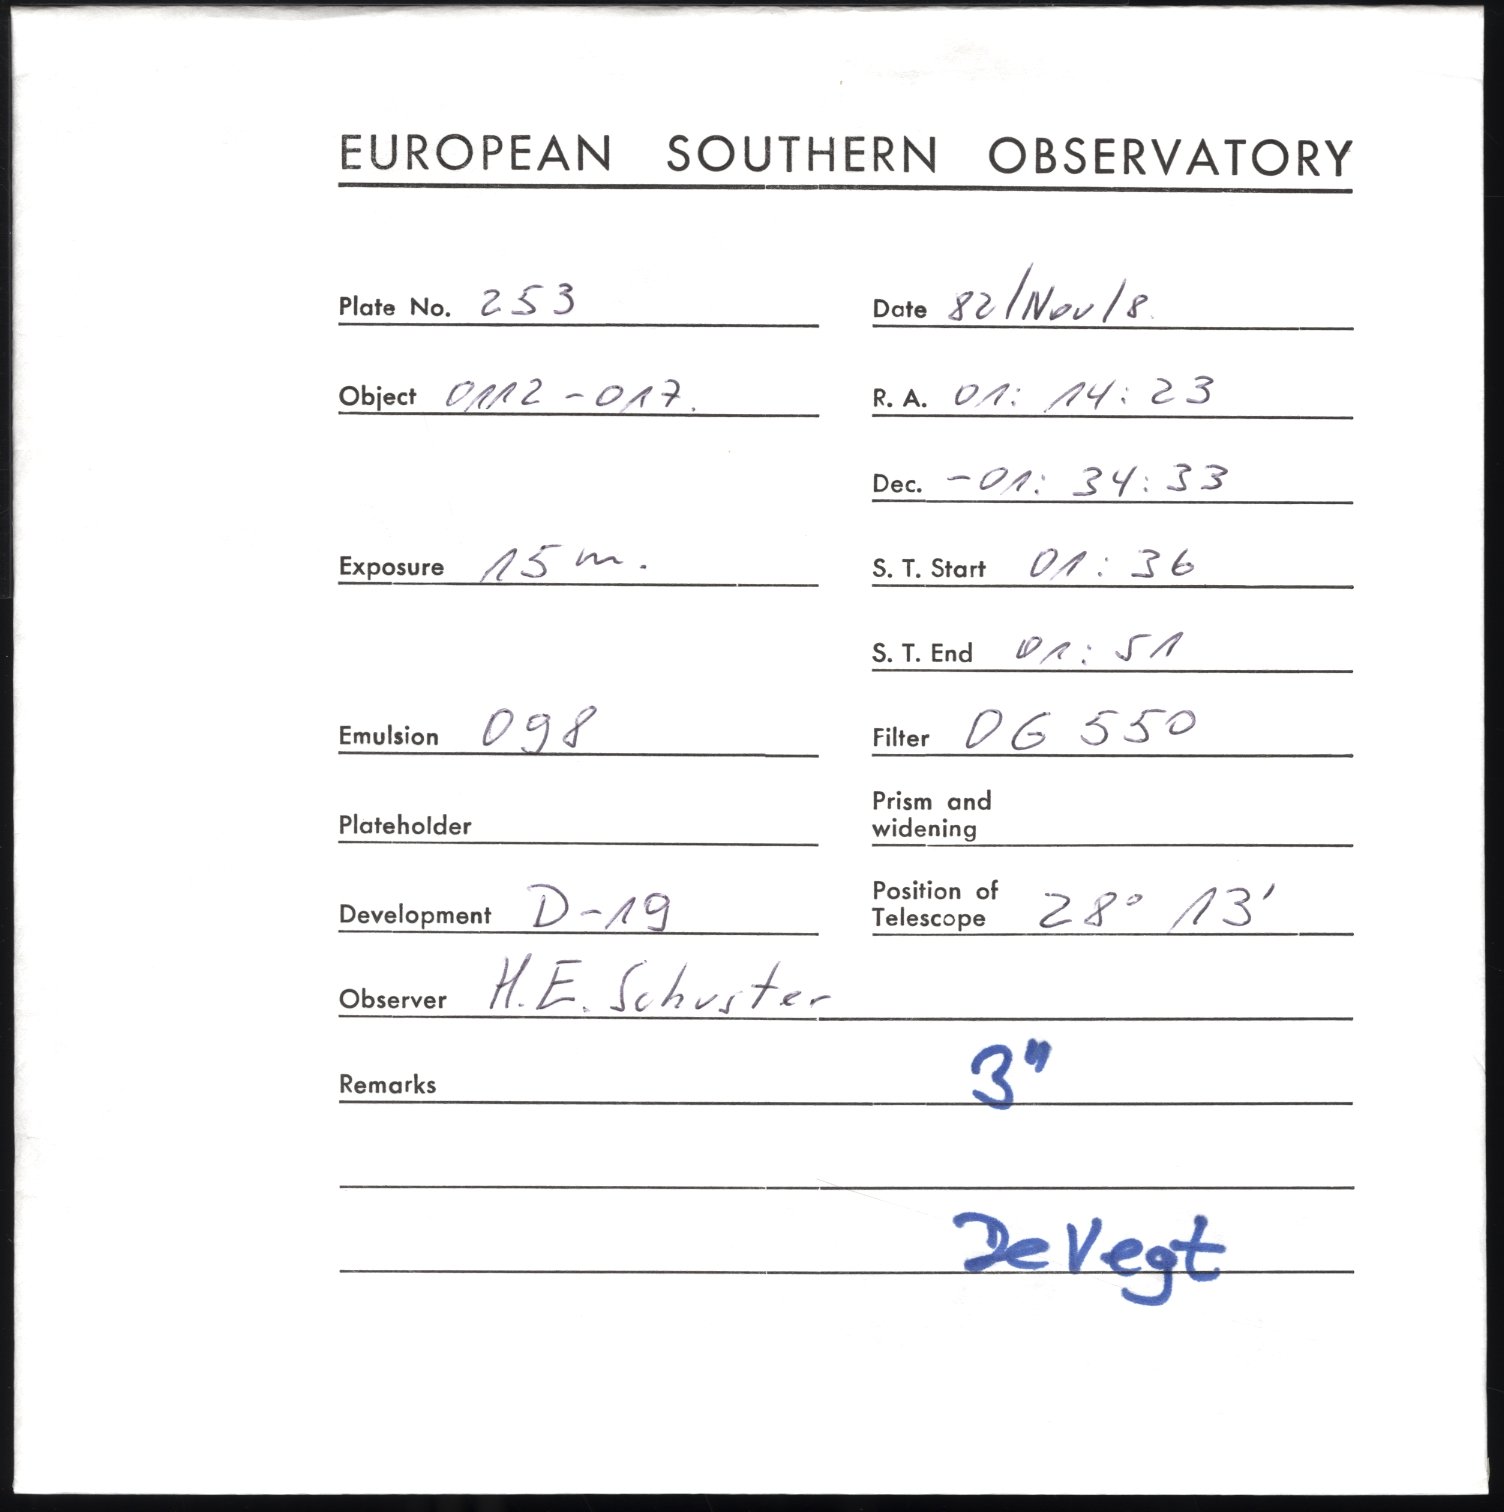 EUROPEAN SOUTHERN OBSERVATORY
Plate No. 253
Date 82/Nov/8.
Object 0112-017.
R. A. 01: 14: 23
Dec. -01: 34: 33
Exposure 15 m.
S. T. Start 01: 36
S. T. End 01: 51
Emulsion 098
Filter OG 550
Plateholder
Prism and
widening
Development D-19
Position of
Telescope 28° 13'
Observer H.E. Schuster
Remarks 3"
De Vegt